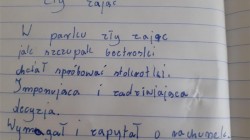 zły zając
W parku zły zając
jak szczupak beztroski
chciał spróbować stokrotki.
Imponująca i zadziwiająca
decyzja.
Wymagał i zapytał o